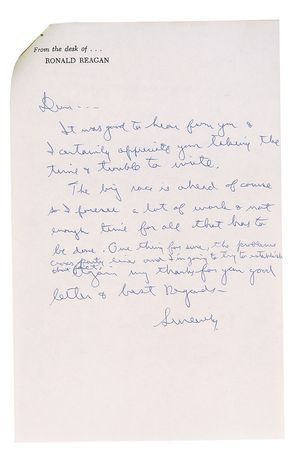 From the desk of . . .
RONALD REAGAN
Dear ---
It was good to hear from you &
I certainly appreciate your taking the
time & trouble to write.
The big race is ahead of course
so I foresee a lot of work & not
enough time for all that has to
be done. One thing for sure, the problems
cross party lines and I'm going to try to establish
that fact.
Again my thanks for your good
letter & best Regards –
Sincerely